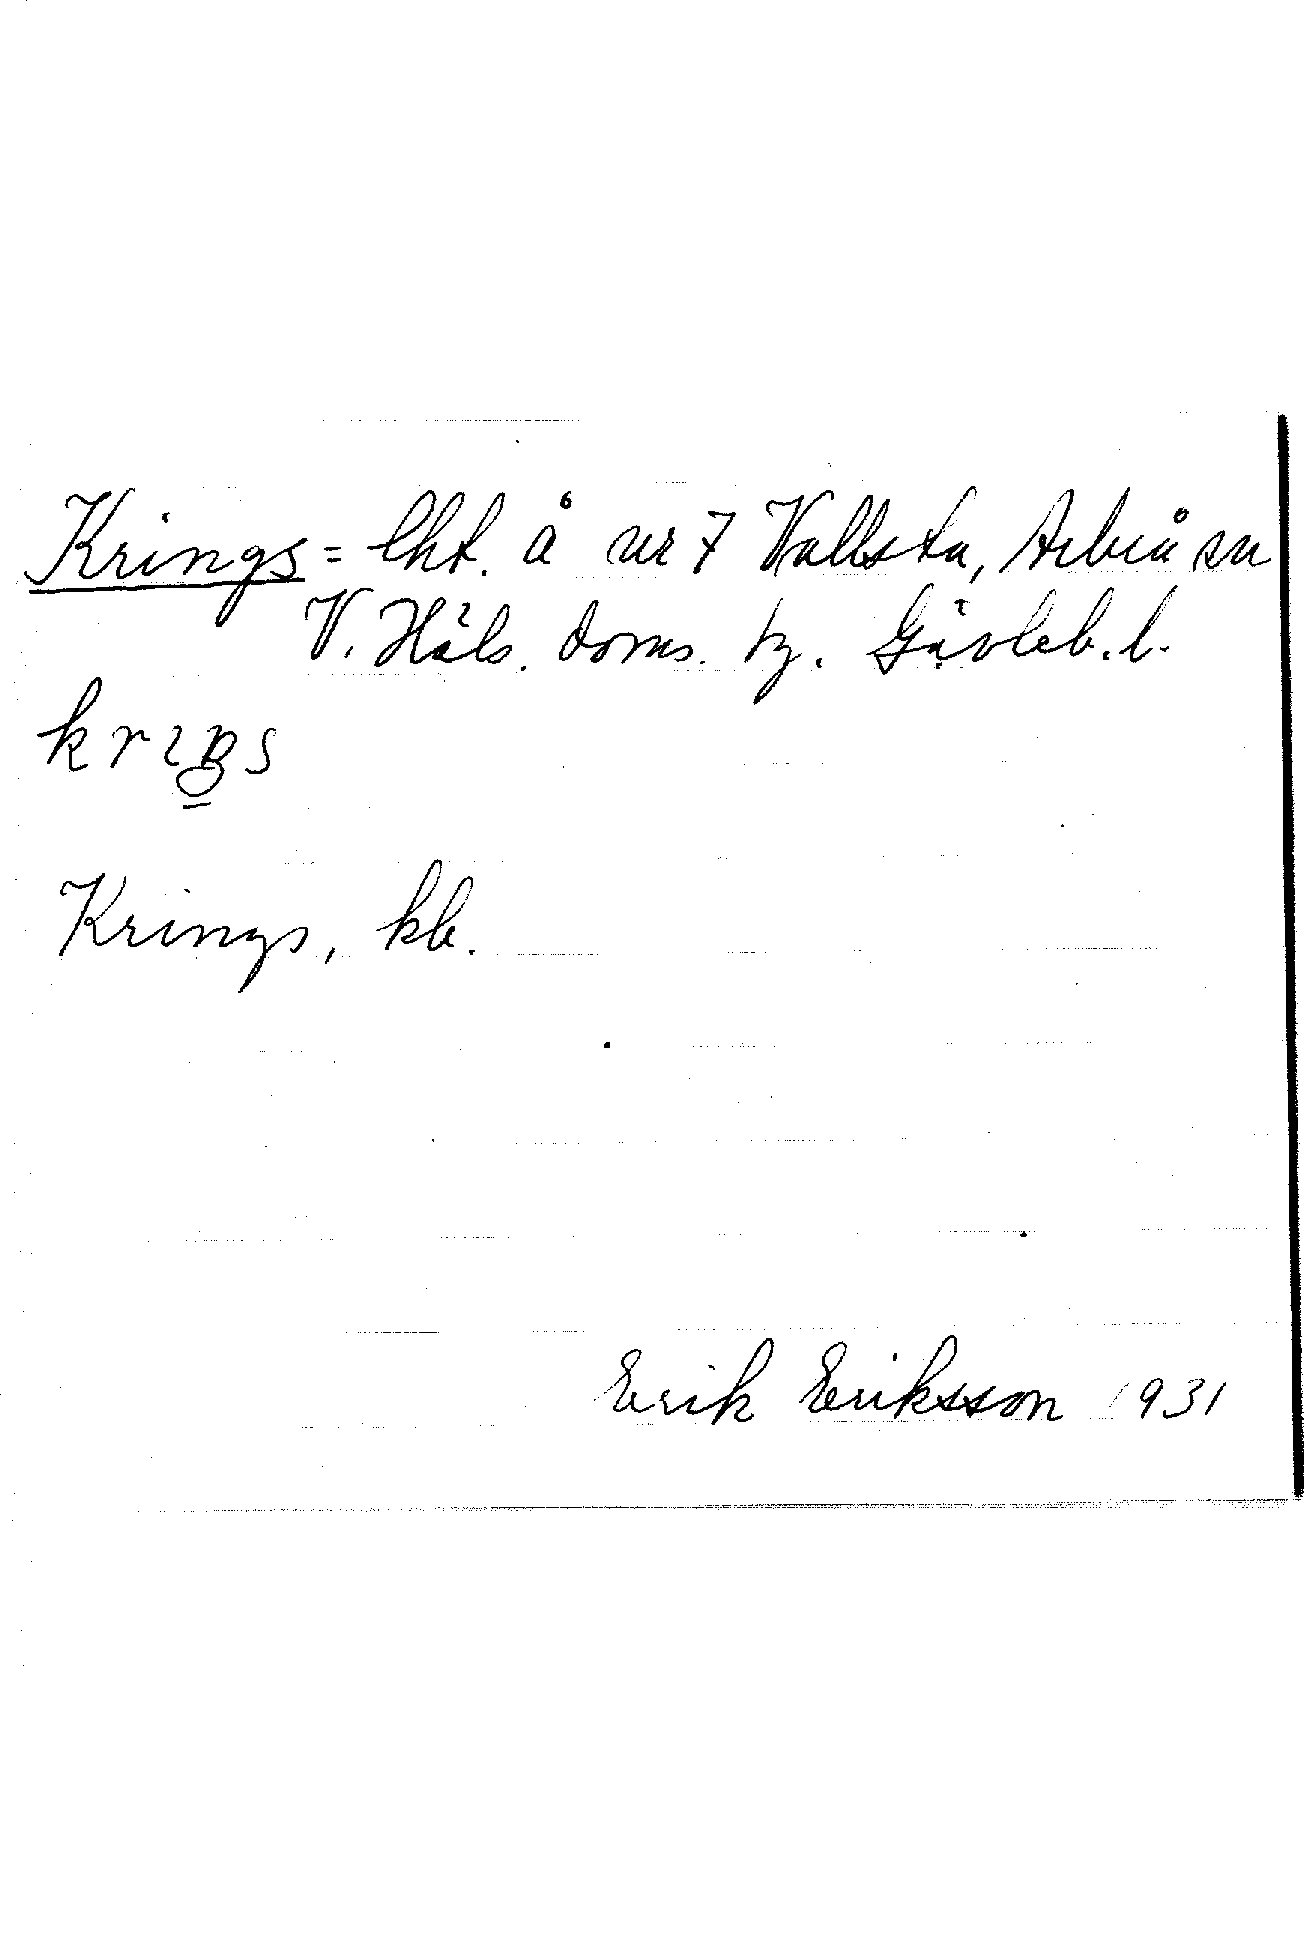 Krings = lht. å nr 7 Vallsta, Arbrå sn
V. Häls. doms. tg. Gävleb. l.
krıŋs
Krings, kb.
Erik Eriksson 1931